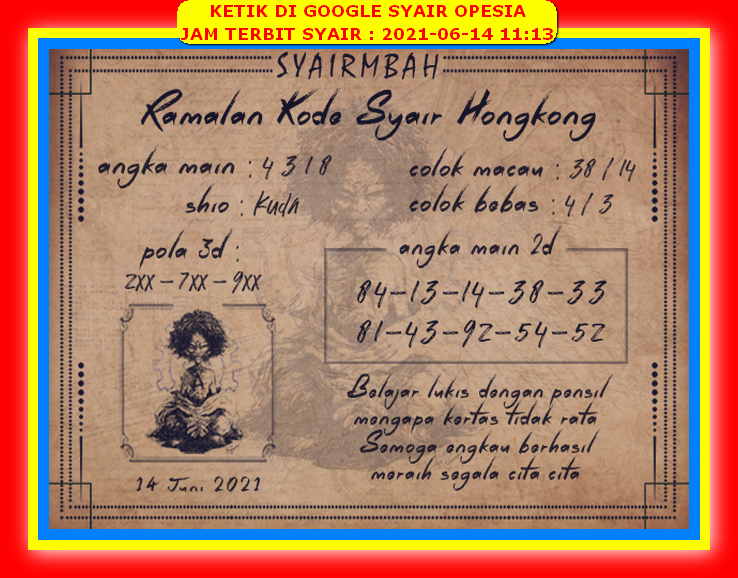 KETIK DI GOOGLE SYAIR OPESIA
JAM TERBIT SYAIR : 2021-06-14 11:13
SYAIRMBAH
Ramalan Kode Syair Hongkong
angka main : 4 3 1 8
colok macau : 38 / 14
shio : Kuda
colok bebas : 4 / 3
pola 3d :
2XX – 7XX – 9XX
angka main 2d
84–13–14–38–33
81–43–92–54–52
Belajar lukis dengan pensil
mengapa kertas tidak rata
Semoga engkau berhasil
meraih segala cita cita
14 Juni 2021